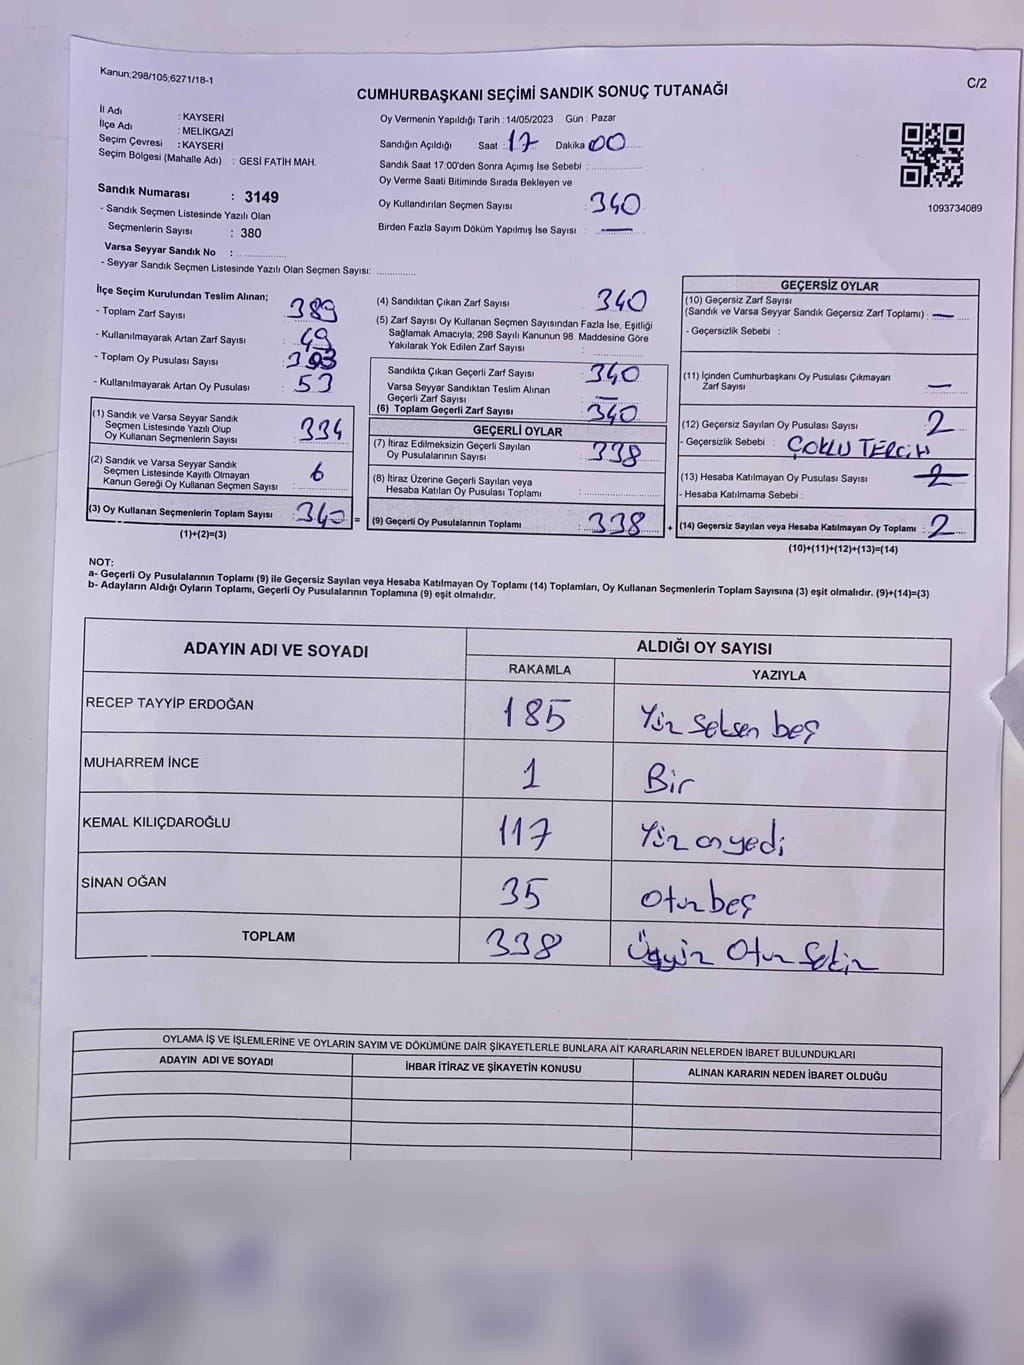 Kanun;298/105;6271/18-1
C/2
CUMHURBAŞKANI SEÇİMİ SANDIK SONUÇ TUTANAĞI
İl Adı : KAYSERİ
İlçe Adı : MELİKGAZİ
Seçim Çevresi : KAYSERİ
Seçim Bölgesi (Mahalle Adı) : GESİ FATİH MAH.
Sandık Numarası : 3149
- Sandık Seçmen Listesinde Yazılı Olan
Seçmenlerin Sayısı : 380
Varsa Seyyar Sandık No :
- Seyyar Sandık Seçmen Listesinde Yazılı Olan Seçmen Sayısı:
Oy Vermenin Yapıldığı Tarih : 14/05/2023 Gün : Pazar
Sandığın Açıldığı Saat : 17 Dakika 00
Sandık Saat 17:00'den Sonra Açımış İse Sebebi :
Oy Verme Saati Bitiminde Sırada Bekleyen ve
Oy Kullandırılan Seçmen Sayısı : 340
Birden Fazla Sayım Döküm Yapılmış İse Sayısı : —
1093734089
İlçe Seçim Kurulundan Teslim Alınan;
- Toplam Zarf Sayısı : 389
- Kullanılmayarak Artan Zarf Sayısı : 49
- Toplam Oy Pusulası Sayısı : 393
- Kullanılmayarak Artan Oy Pusulası : 53
(1) Sandık ve Varsa Seyyar Sandık
Seçmen Listesinde Yazılı Olup
Oy Kullanan Seçmenlerin Sayısı : 334
(2) Sandık ve Varsa Seyyar Sandık
Seçmen Listesinde Kayıtlı Olmayan
Kanun Gereği Oy Kullanan Seçmen Sayısı : 6
(3) Oy Kullanan Seçmenlerin Toplam Sayısı : 340 =
(1)+(2)=(3)
(4) Sandıktan Çıkan Zarf Sayısı : 340
(5) Zarf Sayısı Oy Kullanan Seçmen Sayısından Fazla İse, Eşitliği
Sağlamak Amacıyla; 298 Sayılı Kanunun 98. Maddesine Göre
Yakılarak Yok Edilen Zarf Sayısı :
Sandıkta Çıkan Geçerli Zarf Sayısı : 340
Varsa Seyyar Sandıktan Teslim Alınan
Geçerli Zarf Sayısı : —
(6) Toplam Geçerli Zarf Sayısı : 340
GEÇERLİ OYLAR
(7) İtiraz Edilmeksizin Geçerli Sayılan
Oy Pusulalarının Sayısı : 338
(8) İtiraz Üzerine Geçerli Sayılan veya
Hesaba Katılan Oy Pusulası Toplamı :
(9) Geçerli Oy Pusulalarının Toplamı : 338 +
GEÇERSİZ OYLAR
(10) Geçersiz Zarf Sayısı
(Sandık ve Varsa Seyyar Sandık Geçersiz Zarf Toplamı) : —
- Geçersizlik Sebebi :
(11) İçinden Cumhurbaşkanı Oy Pusulası Çıkmayan
Zarf Sayısı : —
(12) Geçersiz Sayılan Oy Pusulası Sayısı : 2
- Geçersizlik Sebebi : ÇOKLU TERCİH
(13) Hesaba Katılmayan Oy Pusulası Sayısı : 2
- Hesaba Katılmama Sebebi :
(14) Geçersiz Sayılan veya Hesaba Katılmayan Oy Toplamı : 2
(10)+(11)+(12)+(13)=(14)
NOT:
a- Geçerli Oy Pusulalarının Toplamı (9) ile Geçersiz Sayılan veya Hesaba Katılmayan Oy Toplamı (14) Toplamları, Oy Kullanan Seçmenlerin Toplam Sayısına (3) eşit olmalıdır. (9)+(14)=(3)
b- Adayların Aldığı Oyların Toplamı, Geçerli Oy Pusulalarının Toplamına (9) eşit olmalıdır.
ADAYIN ADI VE SOYADI ALDIĞI OY SAYISI
RAKAMLA YAZIYLA
RECEP TAYYİP ERDOĞAN 185 Yüz seksen beş
MUHARREM İNCE 1 Bir
KEMAL KILIÇDAROĞLU 117 Yüz onyedi
SİNAN OĞAN 35 Otuz beş
TOPLAM 338 Üçyüz Otuz Sekiz
OYLAMA İŞ VE İŞLEMLERİNE VE OYLARIN SAYIM VE DÖKÜMÜNE DAİR ŞİKAYETLERLE BUNLARA AİT KARARLARIN NELERDEN İBARET BULUNDUKLARI
ADAYIN ADI VE SOYADI İHBAR İTİRAZ VE ŞİKAYETİN KONUSU ALINAN KARARIN NEDEN İBARET OLDUĞU